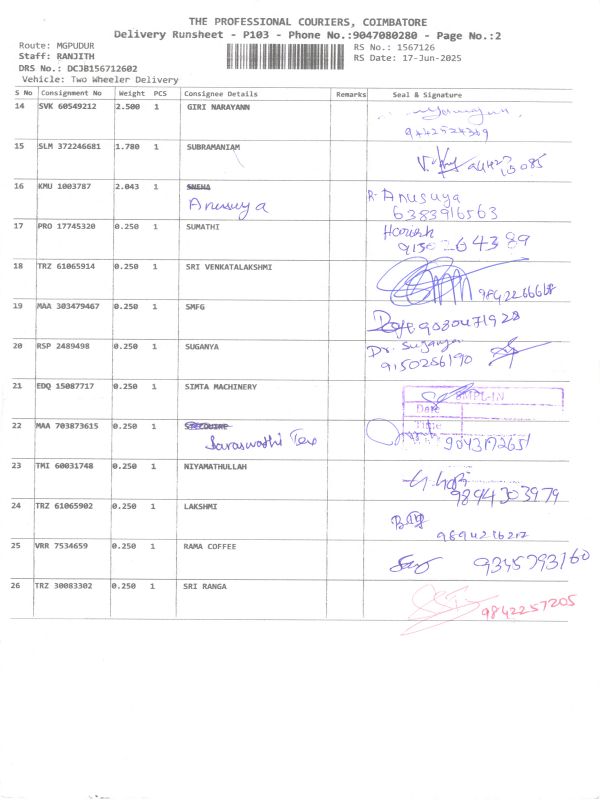 THE PROFESSIONAL COURIERS, COIMBATORE
Delivery Runsheet - P103 - Phone No.:9047080280 - Page No.:2
Route: MGPUDUR RS No.: 1567126
Staff: RANJITH RS Date: 17-Jun-2025
DRS No.: DCJB156712602
Vehicle: Two Wheeler Delivery
S No Consignment No Weight PCS Consignee Details Remarks Seal & Signature
14 SVK 60549212 2.500 1 GIRI NARAYANN
9442524389
15 SLM 372246681 1.780 1 SUBRAMANIAM
16 KMU 1003787 2.043 1 SNEHA R. Anusuya
Anusuya 6383916563
17 PRO 17745320 0.250 1 SUMATHI Harish
9150264389
18 TRZ 61065914 0.250 1 SRI VENKATALAKSHMI
19 MAA 303479467 0.250 1 SMFG
9030471928
20 RSP 2489498 0.250 1 SUGANYA Dr. Suganya
9150256190
21 EDQ 15087717 0.250 1 SIMTA MACHINERY SMPL-IN
Date
Time
22 MAA 703873615 0.250 1
Saraswathi Tex 9043172651
23 TMI 60031748 0.250 1 NIYAMATHULLAH
9894303979
24 TRZ 61065902 0.250 1 LAKSHMI
9894216217
25 VRR 7534659 0.250 1 RAMA COFFEE 9345793160
26 TRZ 30083302 0.250 1 SRI RANGA
9842257205